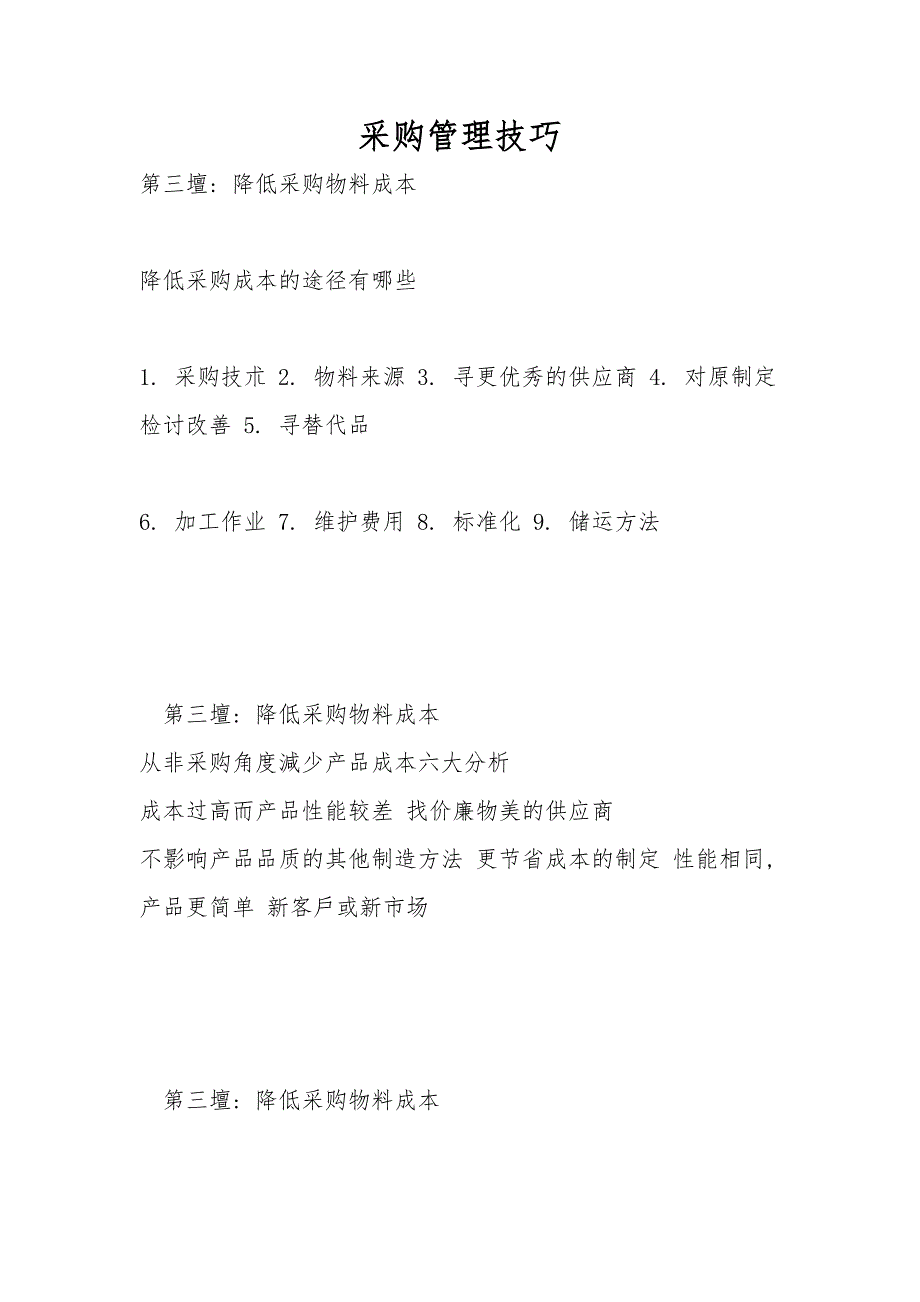 采购管理技巧
第三壇: 降低采购物料成本
降低采购成本的途径有哪些
1. 采购技朮 2. 物料来源 3. 寻更优秀的供应商 4. 对原制定
检讨改善 5. 寻替代品
6. 加工作业 7. 维护费用 8. 标准化 9. 储运方法
第三壇: 降低采购物料成本
从非采购角度減少产品成本六大分析
成本过高而产品性能较差 找价廉物美的供应商
不影响产品品质的其他制造方法 更节省成本的制定 性能相同,
产品更简单 新客戶或新市场
第三壇: 降低采购物料成本